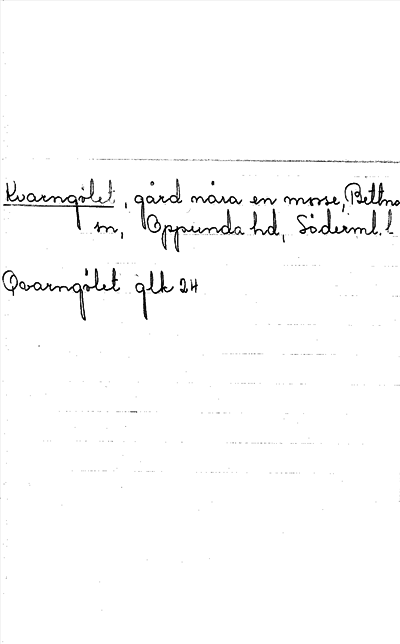 Kvarngölet, gård nära en mosse, Bettna
sn, Oppunda hd, Söderml. l
Qvarngölet glk 24